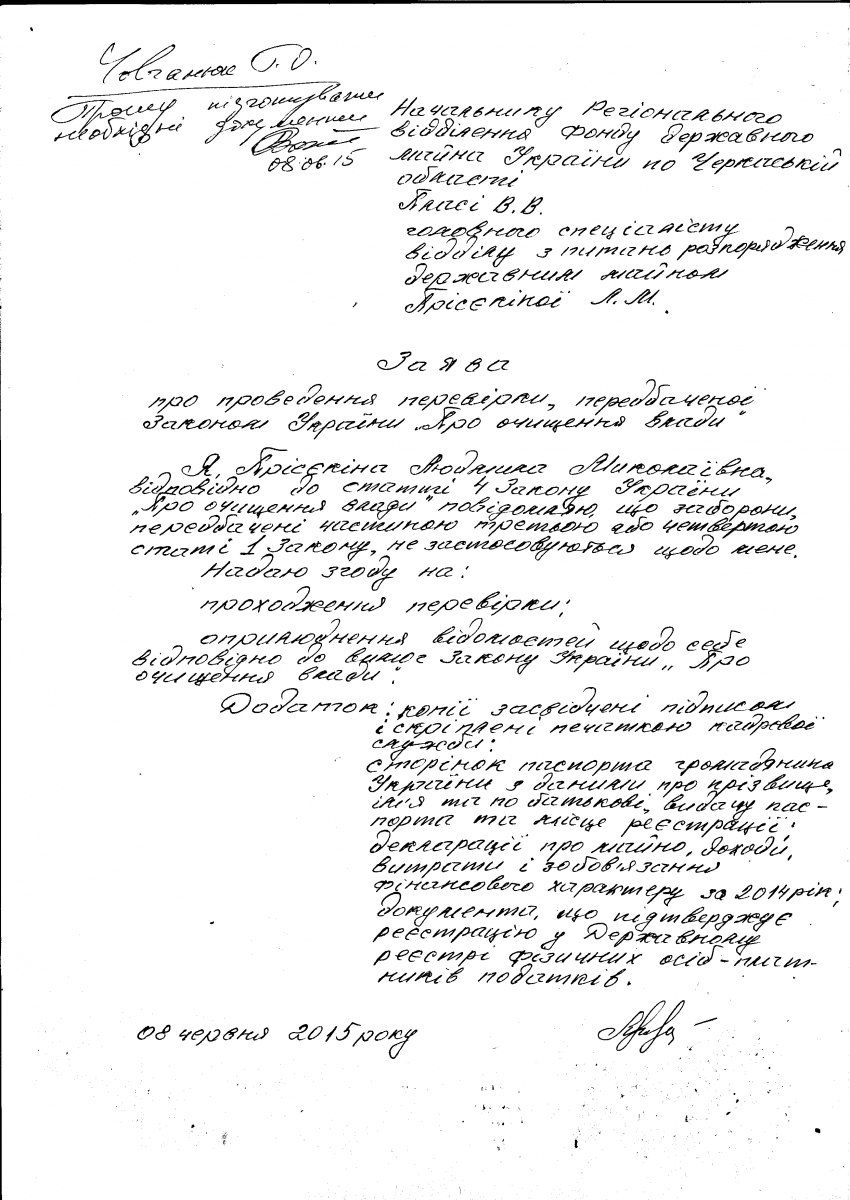 Човганюк Г.О.
Прошу підготувати
необхідні документи
08.06.15
Начальнику Регіонального
відділення Фонду державного
майна України по Черкаській
області
Пласі В.В.
головного спеціалісту
відділу з питань розпорядження
державним майном
Прісєкіної Л.М.
Заява
про проведення перевірки, передбаченої
Законом України „Про очищення влади"
Я, Прісєкіна Людмила Миколаївна,
відповідно до статті 4 Закону України
„Про очищення влади" повідомляю, що заборони,
передбачені частиною третьою або четвертою
статі 1 Закону, не застосовуються щодо мене.
Надаю згоду на:
проходження перевірки;
оприлюднення відомостей щодо себе
відповідно до вимог Закону України „Про
очищення влади".
Додаток: копії засвідчені підписом
і скріплені печаткою кадрової
служби:
сторінок паспорта громадянина
України з даними про прізвище,
ім'я та по батькові, видачу пас-
порта та місце реєстрації;
декларації про майно, доходи,
витрати і зобов'язання
фінансового характеру за 2014 рік;
документа, що підтверджує
реєстрацію у Державному
реєстрі фізичних осіб-плат-
ників податків.
08 червня 2015 року